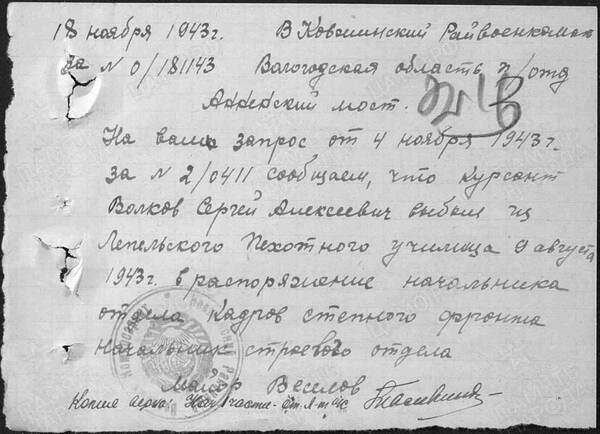 18 ноября 1943г. В Ковжинский Райвоенкомат
за N 0/181143 Вологодская область п/отд
Анненский мост.
На ваш запрос от 4 ноября 1943г.
за N 2/0411 сообщаем, что курсант
Волков Сергей Алексеевич выбыл из
Лепельского Пехотного училища 9 августа
1943г. в распоряжение начальника
отдела Кадров степного фронта
Начальник строевого отдела
Майор Веселов
Копия верна: Нач. 1 части - Ст. л-т а/с